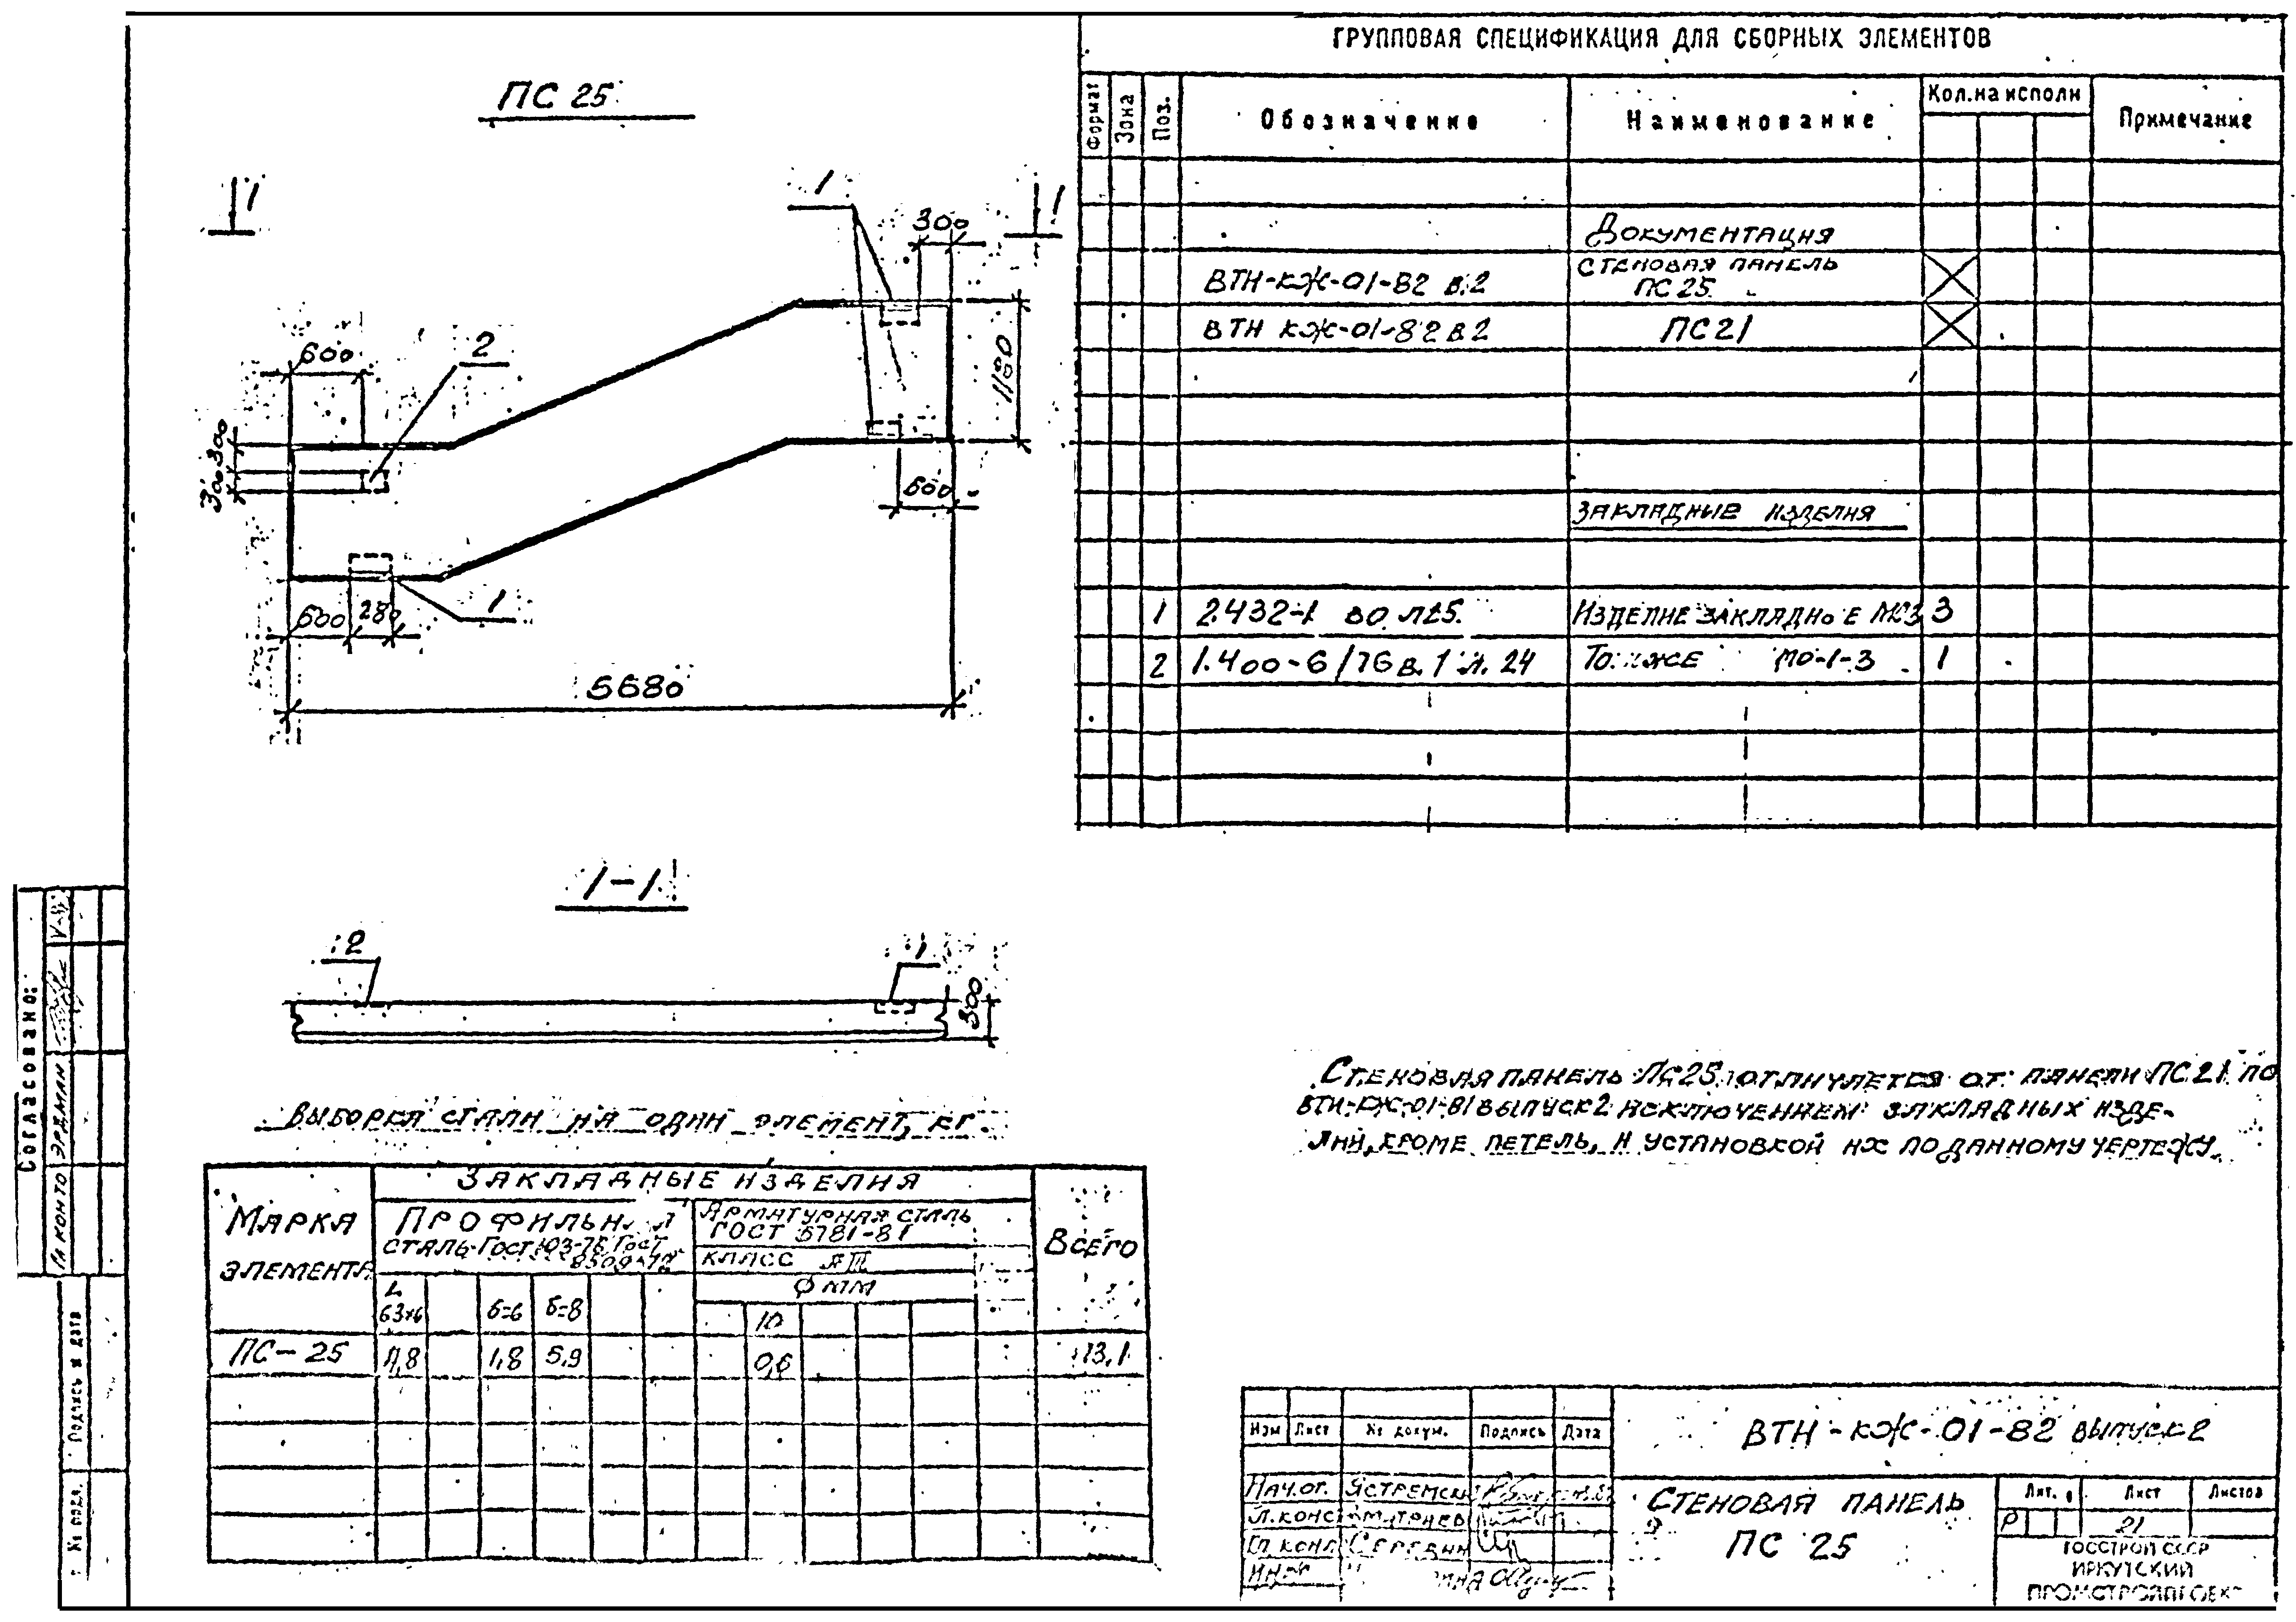 ПС 25
1
1
1
300
600
2
1180
300
300
600
1
600 280
5680
1-1
2
1
300
ГРУППОВАЯ СПЕЦИФИКАЦИЯ ДЛЯ СБОРНЫХ ЭЛЕМЕНТОВ
Формат Зона Поз. Обозначение Наименование Кол. на исполн Примечание
Документация
ВТН-КЖ-01-82 в.2 СТЕНОВАЯ ПАНЕЛЬ ПС 25
ВТН КЖ-01-82 в 2 ПС 21
ЗАКЛАДНЫЕ ИЗДЕЛИЯ
1 2.432-1 ВО Л25. ИЗДЕЛИЕ ЗАКЛАДНОЕ МС3 3
2 1.400-6/76 в.1 л. 24 То же МО-1-3 1
СТЕНОВАЯ ПАНЕЛЬ ПС25 ОТЛИЧАЕТСЯ ОТ ПАНЕЛИ ПС21 ПО
ВТН-КЖ-01-81 ВЫПУСК 2 ИСКЛЮЧЕНИЕМ ЗАКЛАДНЫХ ИЗДЕ-
ЛИЙ, КРОМЕ ПЕТЕЛЬ, И УСТАНОВКОЙ ИХ ПО ДАННОМУ ЧЕРТЕЖУ.
ВЫБОРКА СТАЛИ НА ОДИН ЭЛЕМЕНТ, КГ.
МАРКА ЭЛЕМЕНТА ЗАКЛАДНЫЕ ИЗДЕЛИЯ ВСЕГО
ПРОФИЛЬНАЯ
СТАЛЬ ГОСТ 103-76 ГОСТ
8509-72
АРМАТУРНАЯ СТАЛЬ
ГОСТ 5781-81
КЛАСС АIII
Ф ММ
L 63×6 б=6 б=8 10
ПС-25 4,8 1,8 5,9 0,6 13,1
Согласовано:
ГЛ КОНТО ЭРДМАН
Подпись и дата
№ подл.
Изм Лист № докум. Подпись Дата
ВТН-КЖ-01-82 ВЫПУСК 2
НАЧ.ОТ. ЯСТРЕМСК
Л. КОНС
ГЛ. КОНС СЕРЕДИН
СТЕНОВАЯ ПАНЕЛЬ
ПС 25
Лит. Лист Листов
Р 21
ГОССТРОЙ СССР
ИРКУТСКИЙ
ПРОМСТРОЙПРОЕКТ